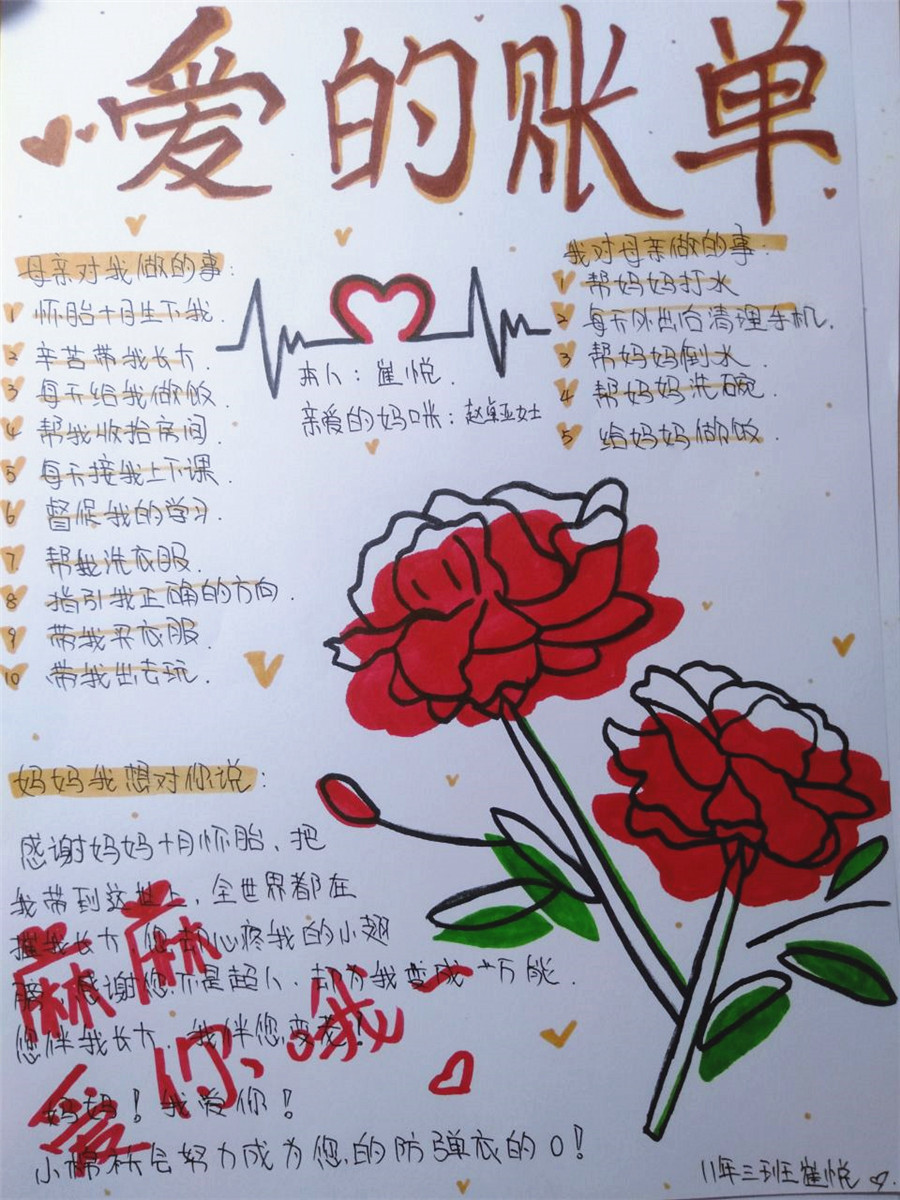 爱的账单
母亲对我做的事:
1 怀胎十月生下我.
2 辛苦带我长大.
3 每天给我做饭.
4 帮我收拾房间
5 每天接我上下课.
6 督促我的学习.
7. 帮我洗衣服.
8 指引我正确的方向.
9 带我买衣服
10 带我出去玩.
本人:崔悦.
亲爱的妈咪:赵卓亚女士
我对母亲做的事:
1 帮妈妈打水
2 每天外出后清理手机.
3 帮妈妈倒水.
4 帮妈妈洗碗.
5 给妈妈做饭.
妈妈我想对你说:
感谢妈妈十月怀胎、把
我带到这世上,全世界都在
我长大,您却心疼我的小翅
膀,感谢您不是超人,却为我变成万能.
您伴我长大,我伴您变老!
妈妈!我爱你!
小棉袄会努力成为您的防弹衣的0!
麻麻
我爱你、
11年三班崔悦